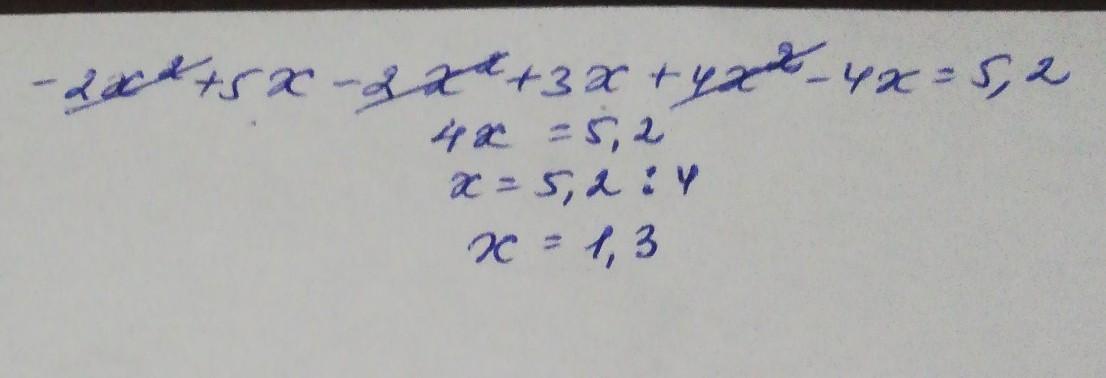 -2x²+5x-2x²+3x+4x²-4x=5,2
4x =5,2
x=5,2:4
x=1,3